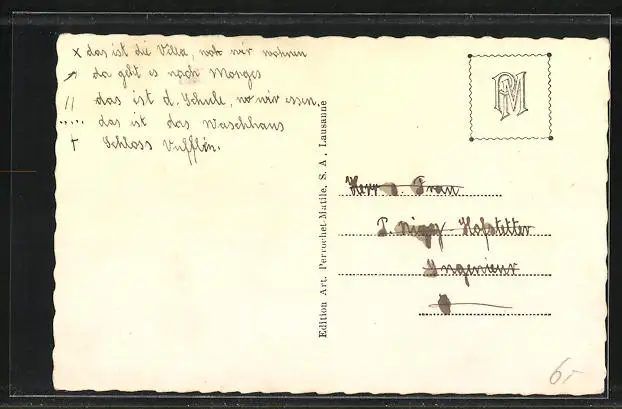 x das ist die Villa, wo wir wohnen
↗ da geht es nach Morges
// das ist d. Schule, wo wir essen.
..... das ist das Waschhaus
† Schloss Vufflin.
Edition Art. Perrochet-Matile, S. A., Lausanne
PM
Herr u. Frau
P. Hofstetter
Ingenieur
6.-